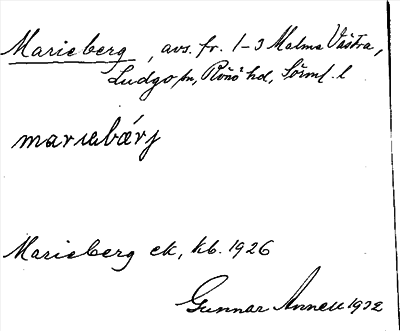 Marieberg, avs. fr. 1-3 Malma Västra,
Ludgo sn, Rönö hd, Sörml. l
marıebárj
Marieberg ek, kb. 1926
Gunnar Annell 1932